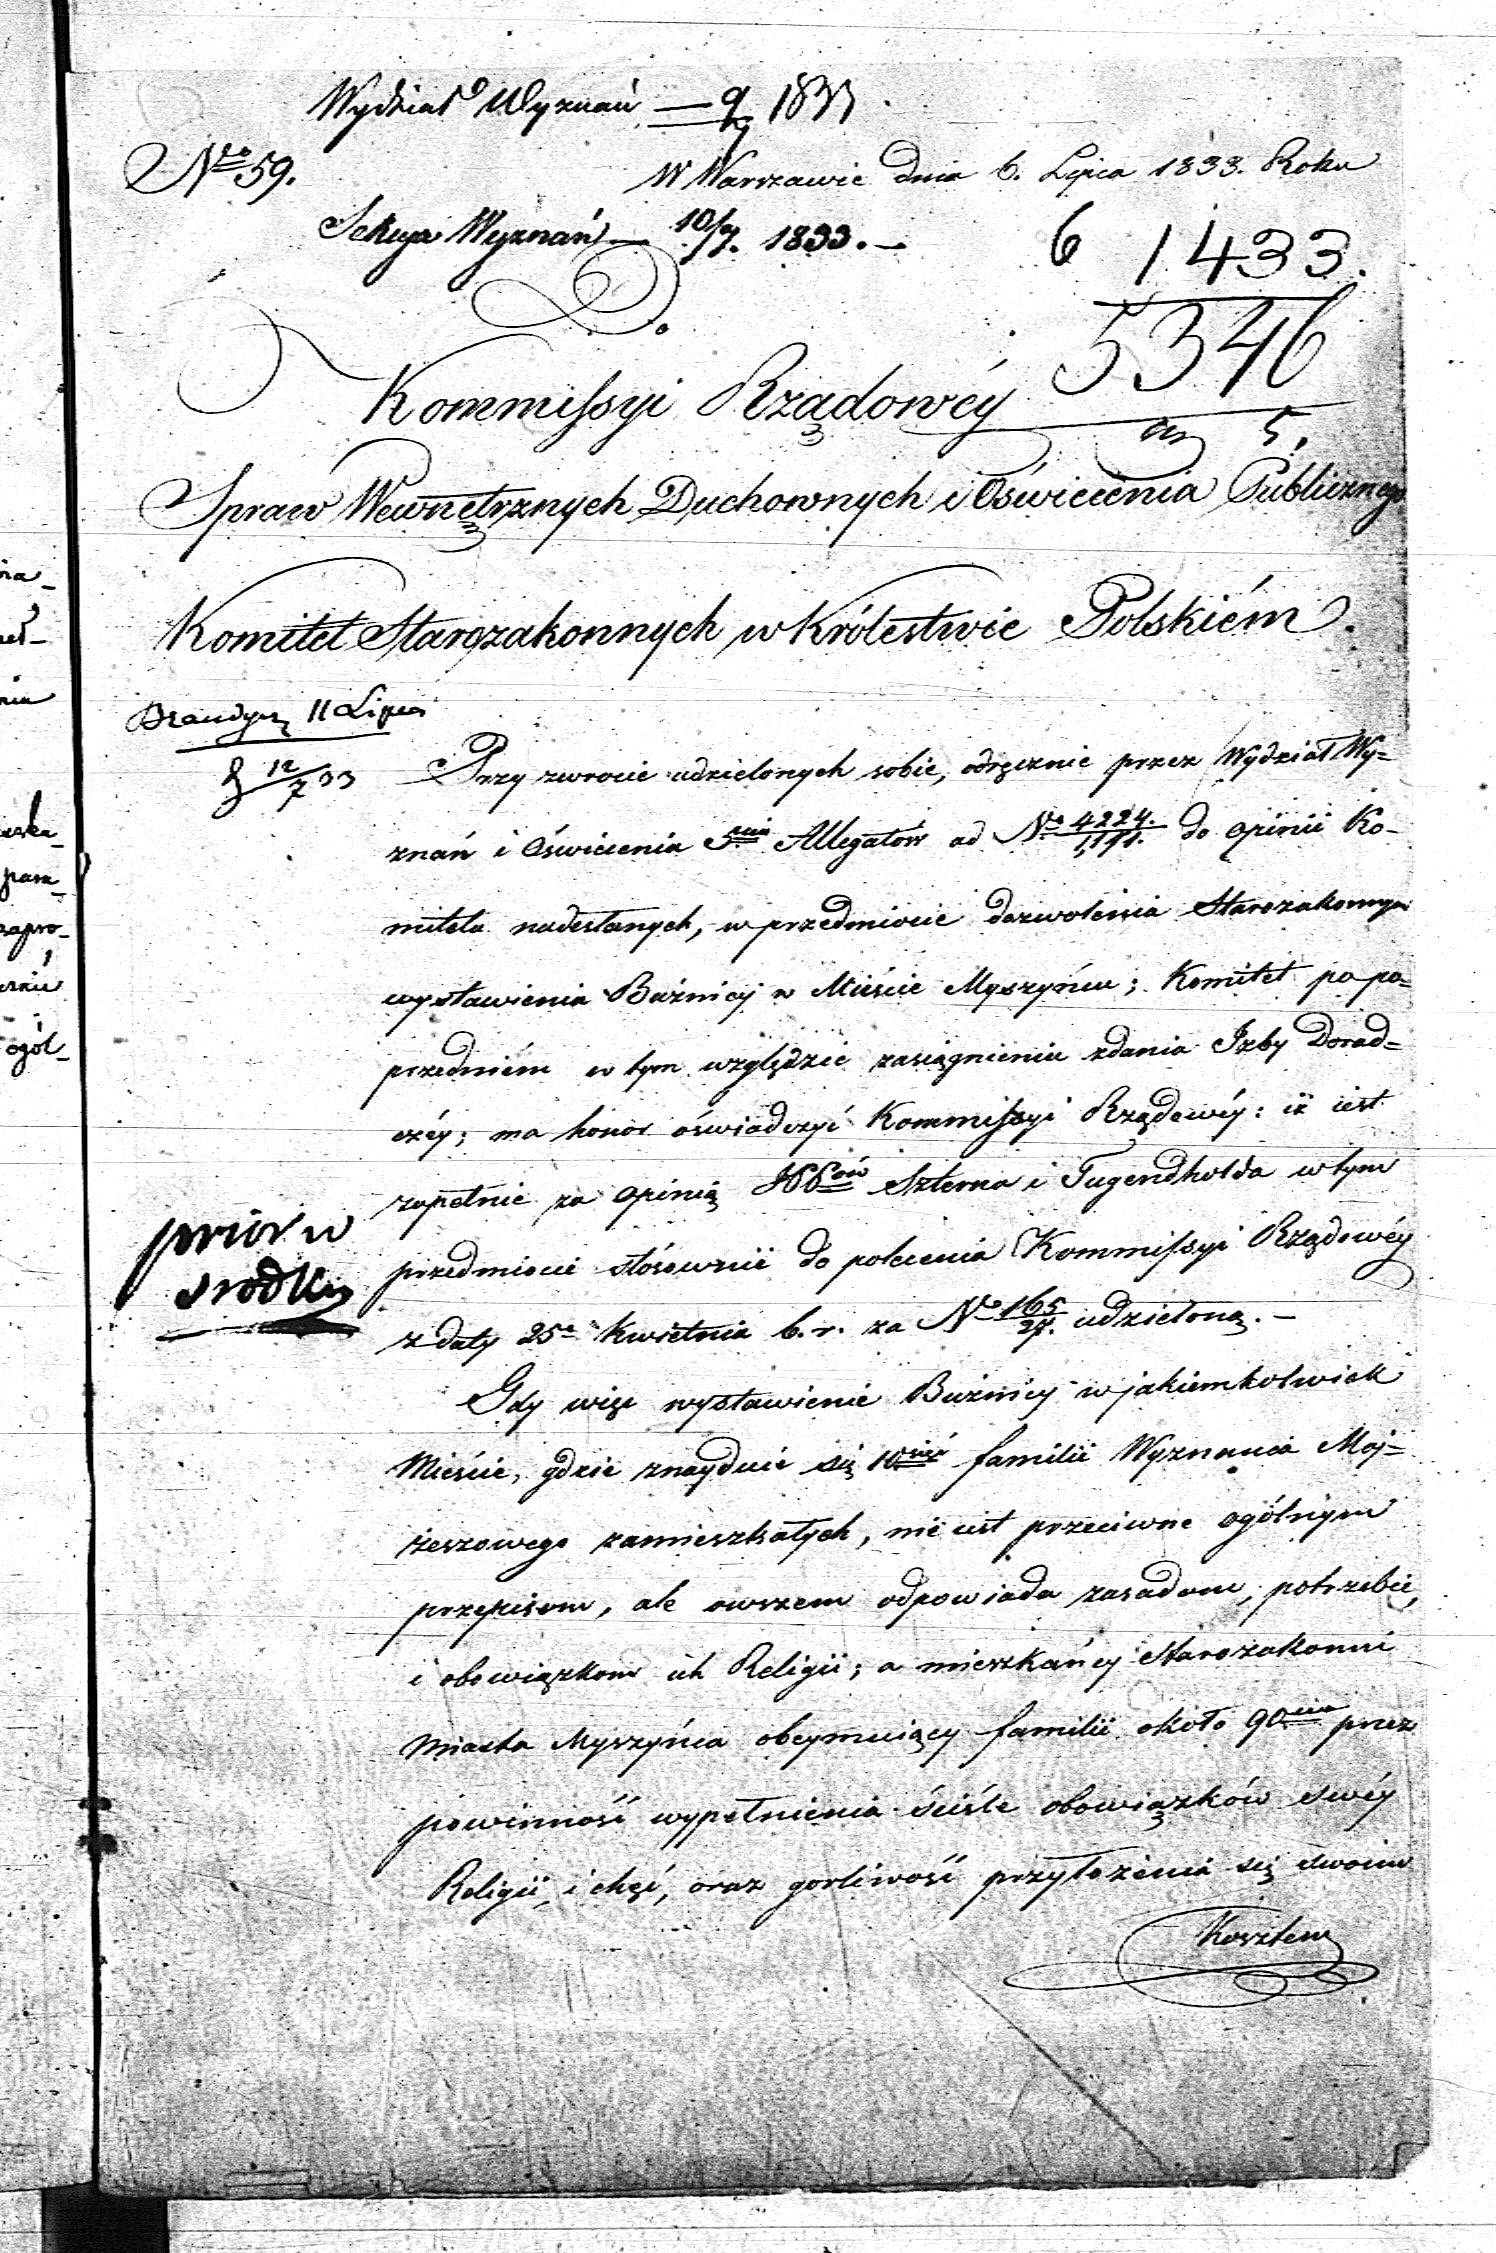 Wydział Wyznań — 9/7 1833.
No 59.
W Warszawie dnia 6. Lipca 1833. Roku
Sekcya Wyznań — 10/7. 1833. —
6 1433.
5346
5.
Do
Kommissyi Rządowéy
Spraw Wewnętrznych Duchownych i Oświecenia Publicznego
Komitet Starozakonnych w Królestwie Polskiém.
11 Lipca
12/7 33
Przy zwrocie udzielonych sobie, odręcznie przez Wydział Wy-
znań i Oświecenia 5ciu Allegatów ad No 4224./1191. do opinii Ko-
mitetu nadesłanych, w przedmiocie dozwolenia Starozakonnym
wystawienia Bóźnicy w Mieście Myszyńcu; Komitet po po-
przedniém w tym względzie zasiągnieniu zdania Izby Dorad-
czéy; ma honor oświadczyć Kommissyi Rządowéy: iż iest
zupełnie za opinią JPPów Szterna i Tugendholda w tym
przedmiocie stósownie do polecenia Kommissyi Rządowéy
z daty 25o Kwietnia b. r. za No 165/27. udzieloną. —
prior w
srodku
Gdy więc wystawienie Bóżnicy w jakiemkolwiek
Mieście, gdzie znayduie się 10sięć familii Wyznania Moj-
żeszowego zamieszkałych, nie iest przeciwne ogólnym
przepisom, ale owszem odpowiada zasadom, potrzebie,
i obowiązkom ich Religii; a mieszkańcy Starozakonni
Miasta Myszyńca obeymuiący familii około 90cia przez
powinność wypełnienia ściśle obowiązków swéy
Religii, i chęć, oraz gorliwość przyłożenia się swoim
Kosztem
ogól-